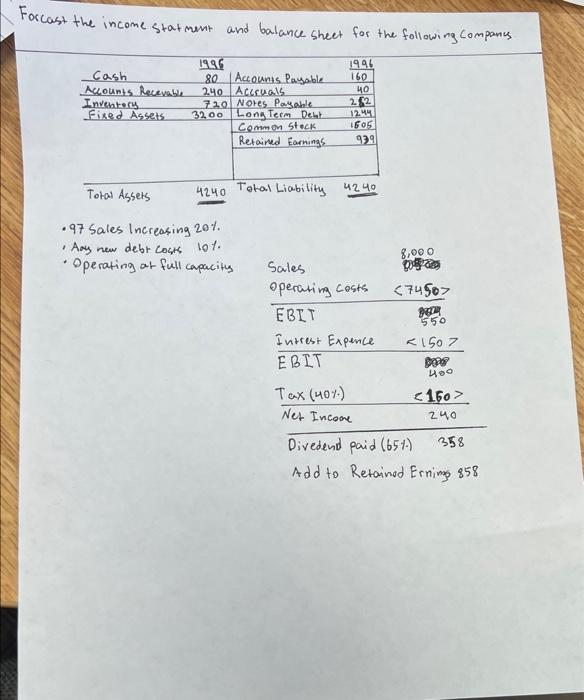 Forcast the income statment and balance sheet for the following Company
1996 1996
Cash 80 Accounts Payable 160
Accounts Recevable 240 Accruals 40
Inventory 720 Notes Payable 252
Fixed Assets 3200 Long Term Debt 1244
Common Stock 1605
Retained Earnings 939
Total Assets 4240 Total Liability 4240
• 97 Sales Increasing 20%.
• Any new debt costs 10%.
• Operating at full capacity
Sales 8,000
Operating Costs <7450>
EBIT 550
Intrest Expence <150>
EBIT 400
Tax (40%) <160>
Net Income 240
Divedend paid (65%) 358
Add to Retained Erning 858